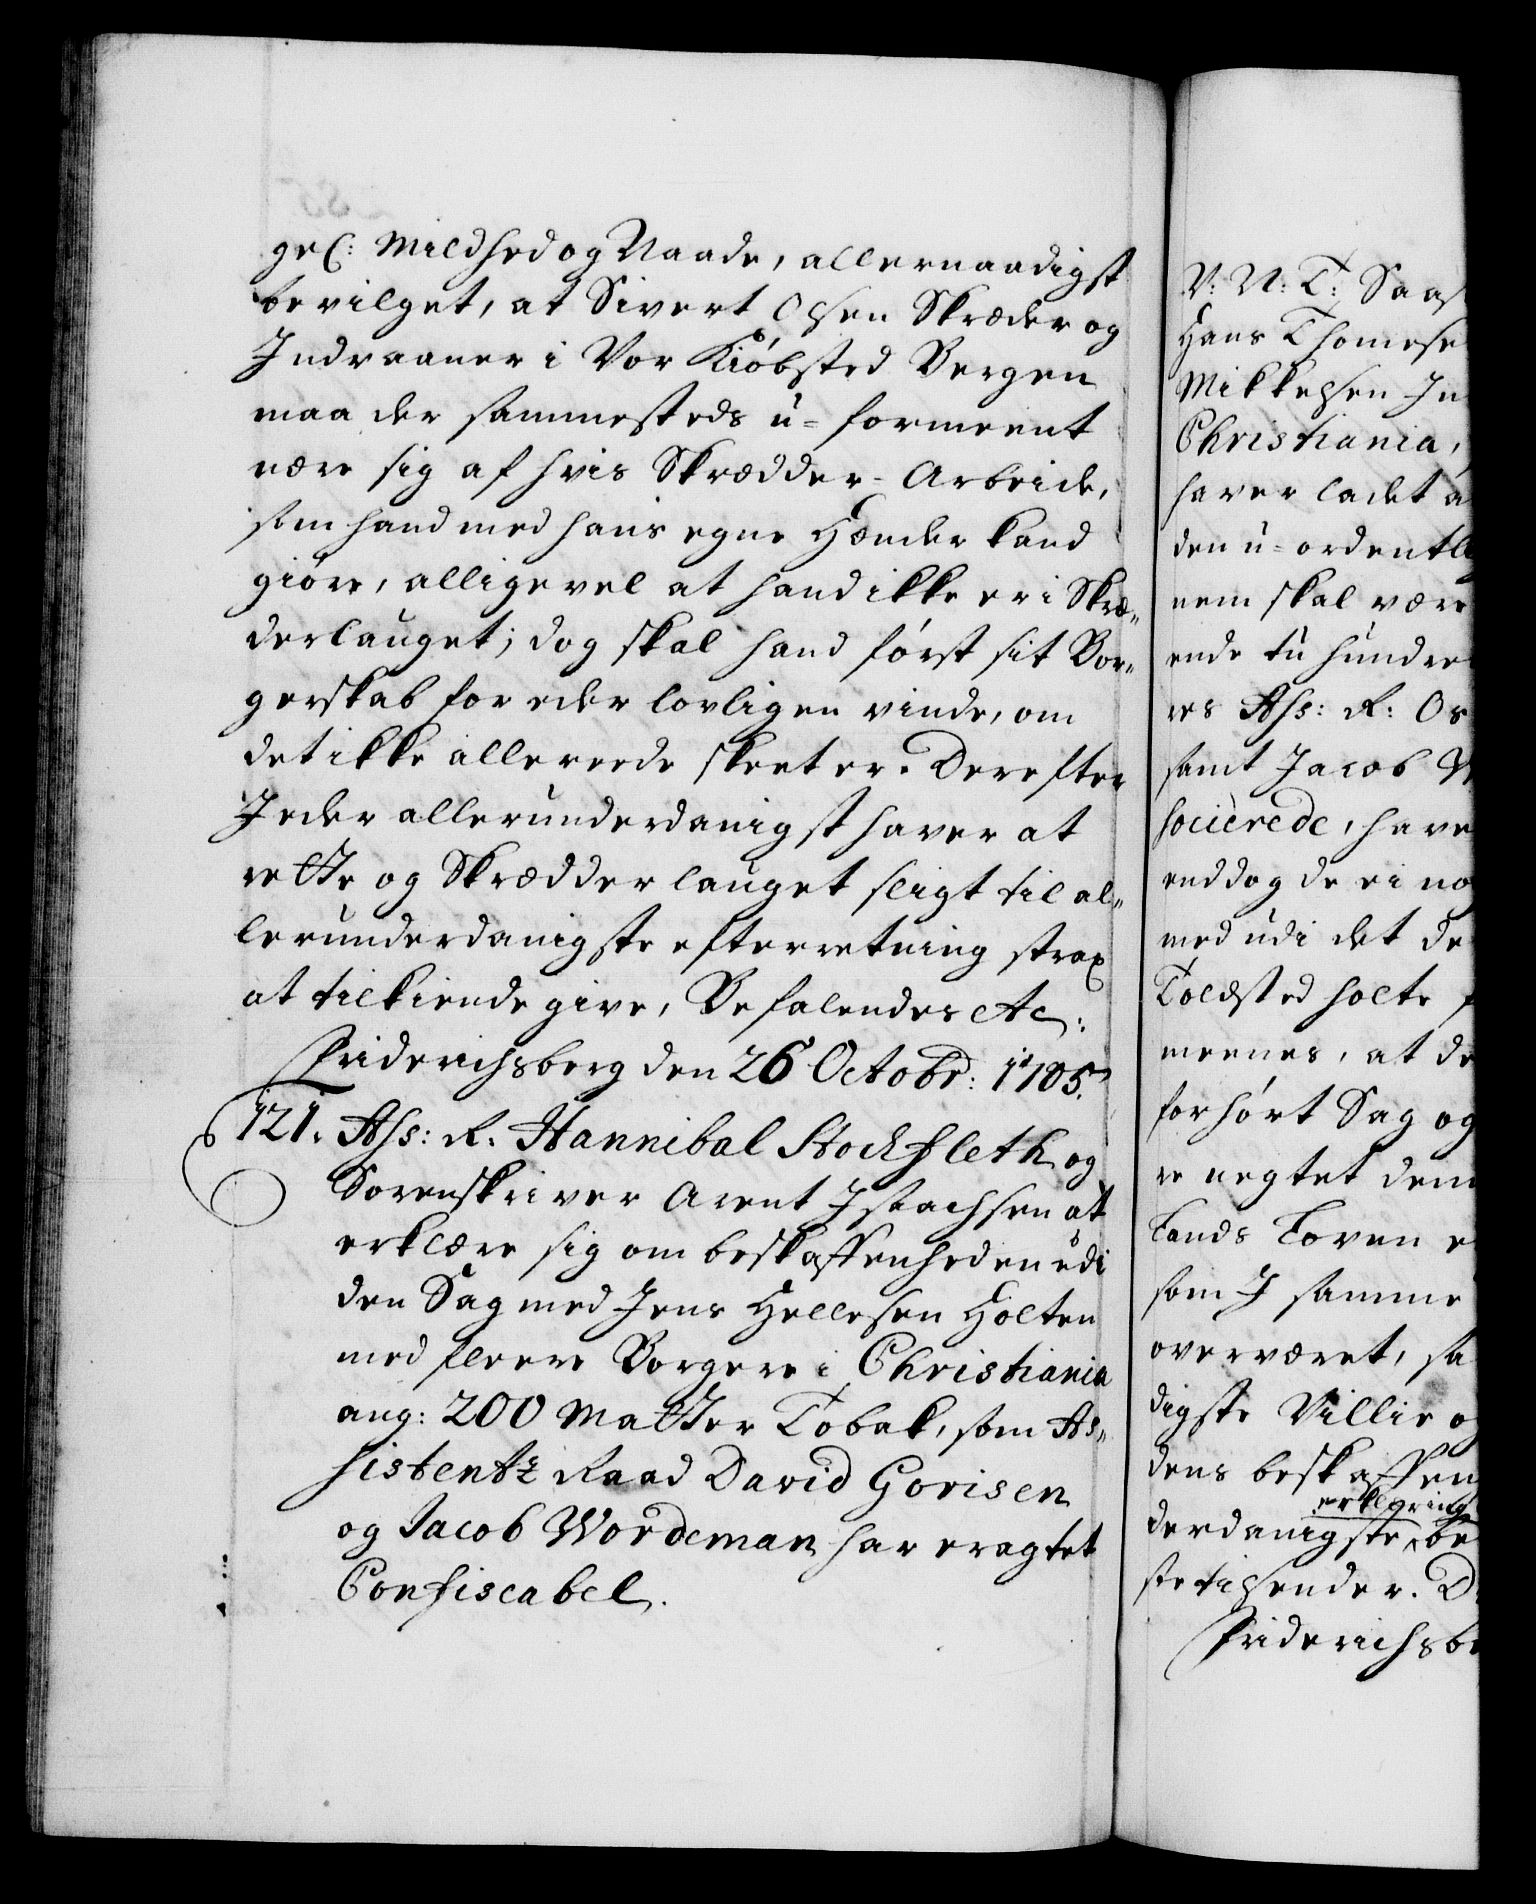 gel: Mildhed og Naade, allernaadigst
bevilget, at Sivert Olsen Skræder og
Indvaaner i Vor Kiöbsted Bergen
maa der sammesteds u-formeent
nære sig af hvis Skrædder-Arbeide,
som hand med hans egne Hænder kand
giöre, alligevel at hand ikke er i Skræ„
derlauget; dog skal hand först sit Bor„
gerskab for eder lovligen vinde, om
det ikke allereede skeet er. Derefter
I eder allerunderdanigst haver at
rette og Skrædderlauget sligt til al„
lerunderdanigste efterretning strax
at tilkiende give, Befalendes etc:
Friderichsberg den 26 Octobr: 1705.
121. Ass: R: Hannibal Stockfleth og
Sorenskriver Arent Isaachsen at
erklære sig om beskaffenheden udi
den Sag med Jens Hellesen Holten
med fleere Borgere i Christiania
ang: 200 Matter Tobak, som As„
sistentz Raad David Gorisen
og Jacob Wordeman har eragtet
Confiscabel.
V: N: T: Saas
Hans Thomese
Mikkelsen In
Christiania,
haver ladet a
den u-ordentli
nem skal være
ende tu hundre
res Ass: R: Os
samt Jacob W
socierede, have
enddog de ei no
med udi det de
Toldsted holte
meenes, at de
forhört Sag og
re negtet dem
Lands Loven e
som I samme
overværet, sa
digste Villie o
dens beskaffen
erklæring
derdanigste be
ste tilsender. D
Friderichsbe